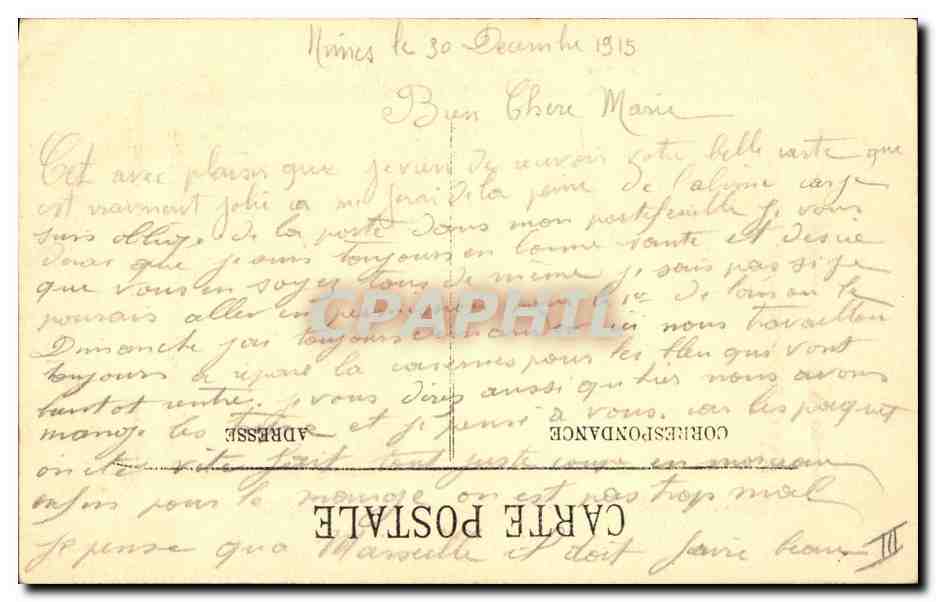 Nimes le 30 Decembre 1915
Bien Chere Marie
Cet avec plaisir que je vien de recevoir votre belle carte que
est vraiment jolie ca me ferai de la peine de l'abimé car je
suis obligé de la porté dans mon portefeuille Je vous
dirai que je suis toujours en bonne santé et desire
que vous en soyez tous de même je sais pas si je
pourais aller en permission pour le 1er de l'an ou le
Dimanche jai toujours demander ici nous travaillon
toujours a réparé la casernes pour les bleu qui vont
tantot rentré. je vous dires aussi qu'hier nous avons
mangé les et je pensé a vous. car les paquet
on eté vite fait tout juste coupé en morceau
enfin pour le mangé on est pas trop mal
Je pense qua Marseille il doit faire beau III
CPAPHIL
ADRESSE
CORRESPONDANCE
CARTE POSTALE